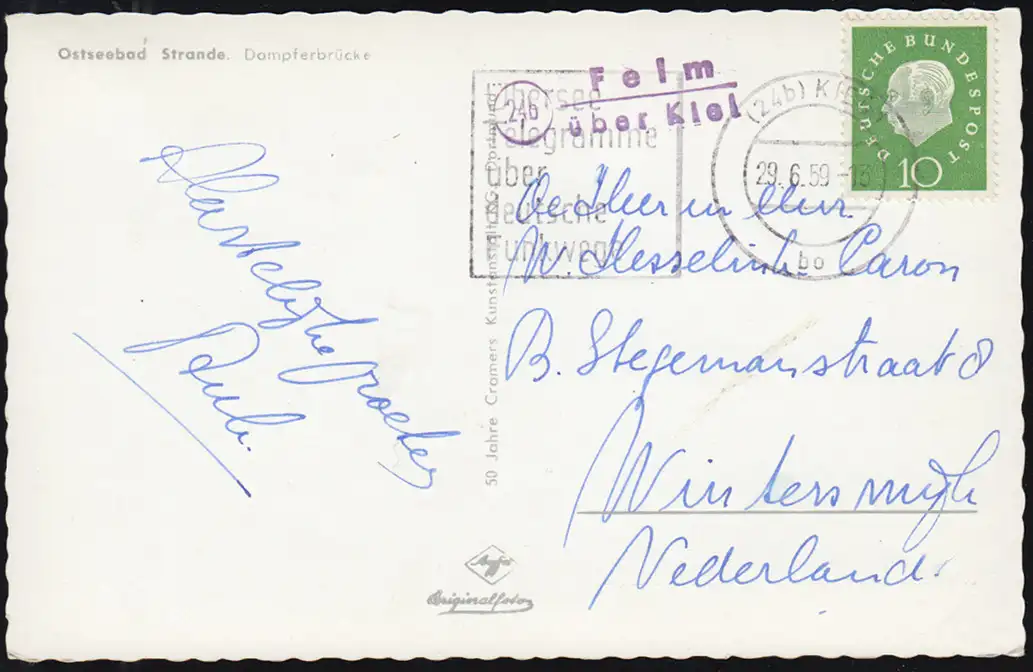 Ostseebad Strande. Dampferbrücke
Hartelijke groeten
Felm
über Kiel
24b
Übersee
telegramme
über
deutsche
Funkwege
(24b) KIEL
29.6.59-13
bo
DEUTSCHE BUNDESPOST
10
De Heer en Mevr.
W. Hesselink Caron
B. Stegemanstraat 8
Winterswijk
Nederland.
50 Jahre Cramers Kunstanstalt KG., Dortmund
Agfa
Originalfoto